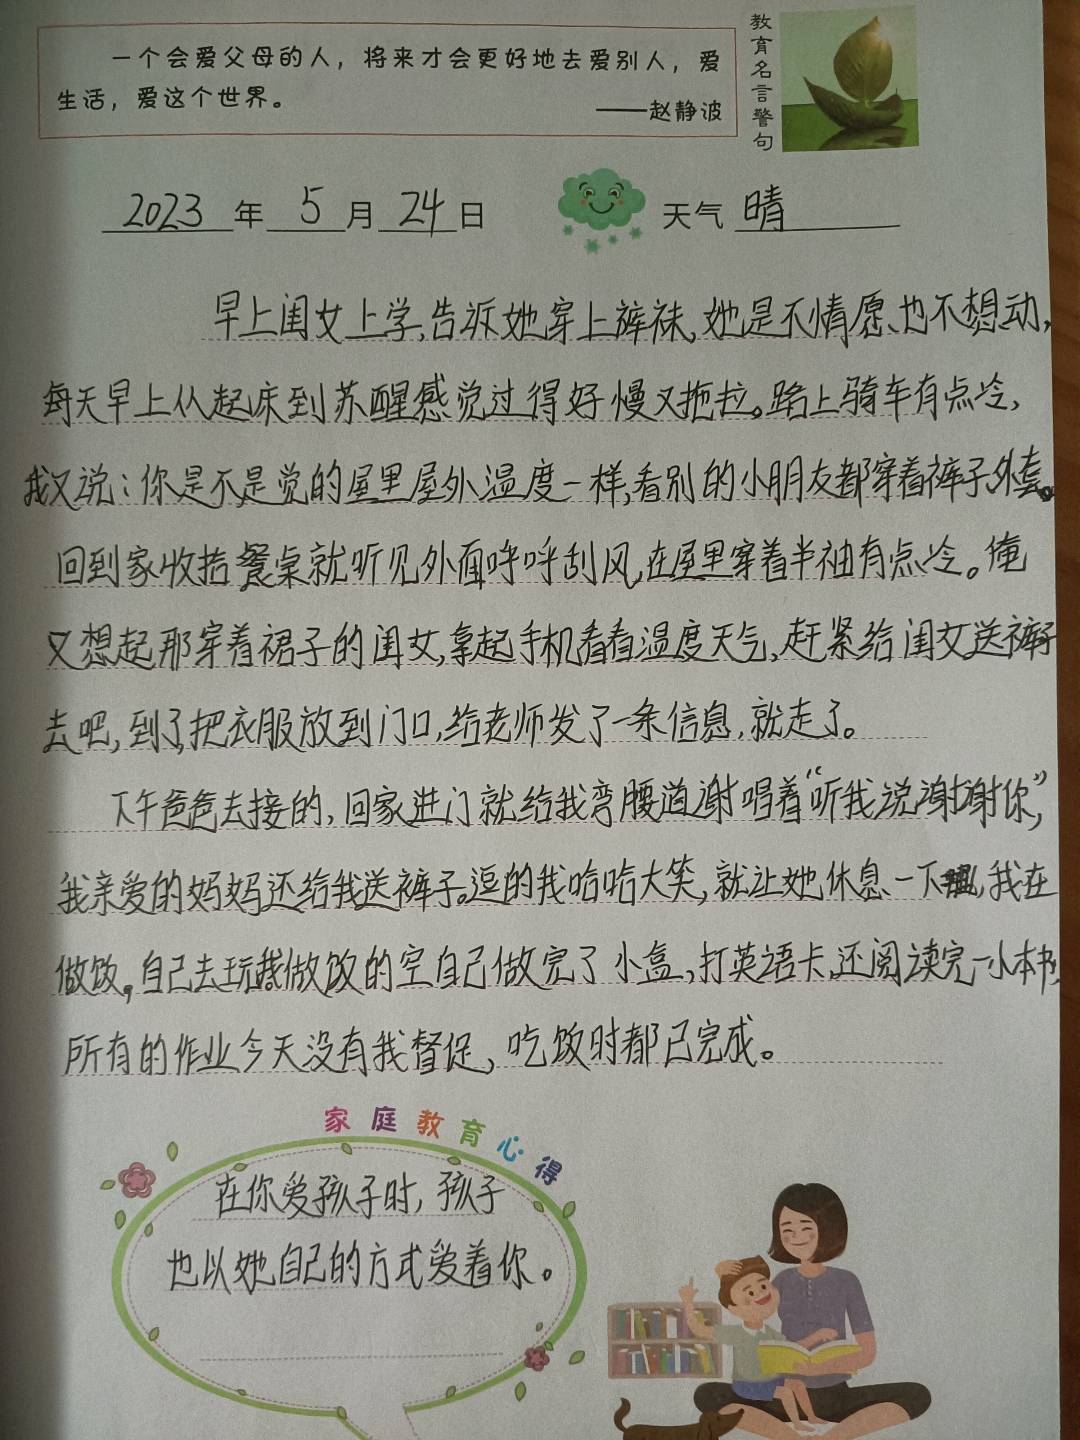 一个会爱父母的人，将来才会更好地去爱别人，爱
生活，爱这个世界。
——赵静波
教育名言警句
2023年5月24日 天气 晴
早上闺女上学,告诉她穿上裤袜,她是不情愿、也不想动,
每天早上从起床到苏醒感觉过得好慢又拖拉。路上骑车有点冷,
我又说:你是不是觉的屋里屋外温度一样,看别的小朋友都穿着裤子外套。
回到家收拾餐桌就听见外面呼呼刮风,在屋里穿着半袖有点冷。俺
又想起那穿着裙子的闺女,拿起手机看看温度天气,赶紧给闺女送裤子
去吧,到了把衣服放到门口,给老师发了一条信息,就走了。
下午爸爸去接的,回家进门就给我弯腰道谢唱着“听我说谢谢你”,
我亲爱的妈妈还给我送裤子。逗的我哈哈大笑,就让她休息一下,我在
做饭,自己去玩我做饭的空自己做完了小盒,打英语卡,还阅读完一小本书,
所有的作业今天没有我督促,吃饭时都已完成。
家庭教育心得
在你爱孩子时,孩子
也以她自己的方式爱着你。